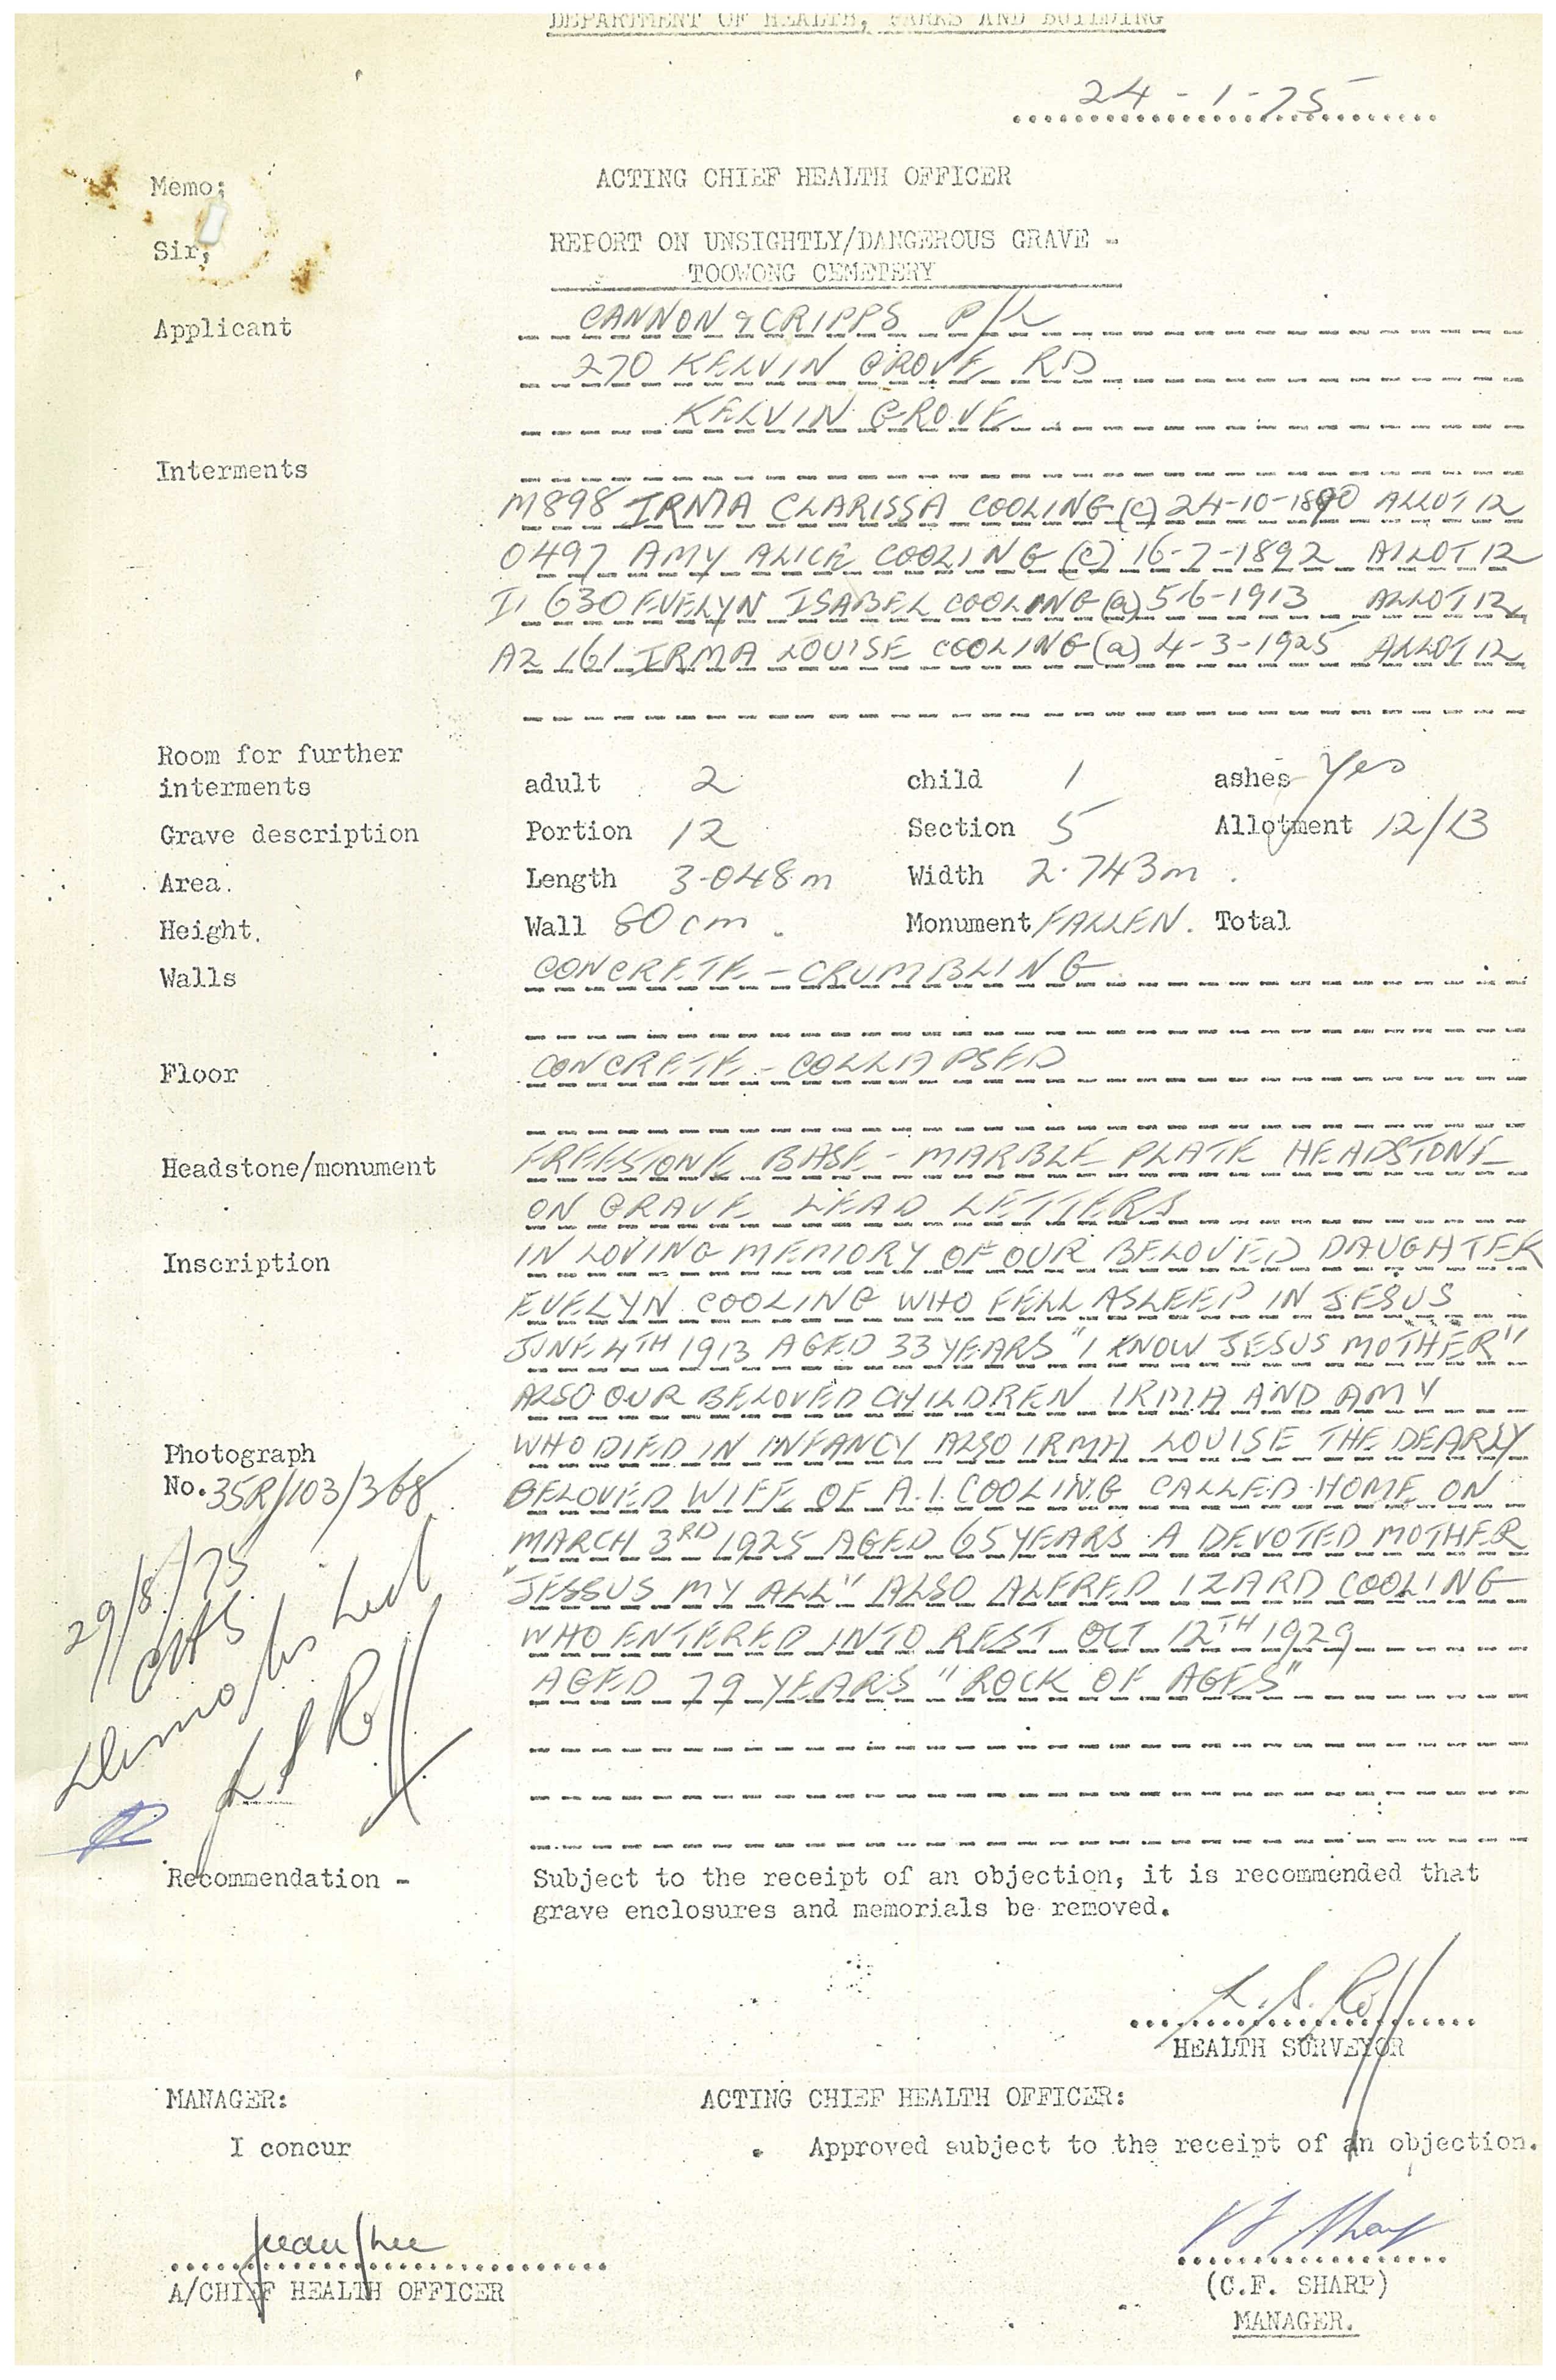 DEPARTMENT OF HEALTH, PARKS AND BUILDING
24-1-75
Memo; ACTING CHIEF HEALTH OFFICER
Sir; REPORT ON UNSIGHTLY/DANGEROUS GRAVE -
TOOWONG CEMETERY
Applicant CANNON & CRIPPS P/L
270 KELVIN GROVE RD
KELVIN GROVE
Interments
M898 IRMA CLARISSA COOLING (c) 24-10-1890 ALLOT 12
0497 AMY ALICE COOLING (c) 16-7-1892 ALLOT 12
I1 630 EVELYN ISABEL COOLING (a) 5-6-1913 ALLOT 12
A2 161 IRMA LOUISE COOLING (a) 4-3-1925 ALLOT 12
Room for further
interments adult 2 child 1 ashes Yes
Grave description Portion 12 Section 5 Allotment 12/13
Area. Length 3.048m Width 2.743m.
Height. Wall 80cm. Monument FALLEN. Total
Walls CONCRETE - CRUMBLING
Floor CONCRETE - COLLAPSED
Headstone/monument FREESTONE BASE - MARBLE PLATE HEADSTONE
ON GRAVE LEAD LETTERS
Inscription IN LOVING MEMORY OF OUR BELOVED DAUGHTER
EVELYN COOLING WHO FELL ASLEEP IN JESUS
JUNE 4TH 1913 AGED 33 YEARS "I KNOW JESUS MOTHER"
ALSO OUR BELOVED CHILDREN IRMA AND AMY
Photograph WHO DIED IN INFANCY ALSO IRMA LOUISE THE DEARLY
No. 35R/103/368 BELOVED WIFE OF A.I. COOLING CALLED HOME ON
MARCH 3RD 1925 AGED 65 YEARS A DEVOTED MOTHER
"JESSUS MY ALL" ALSO ALFRED IZARD COOLING
WHO ENTERED INTO REST OCT 12TH 1929
AGED 79 YEARS "ROCK OF AGES"
29/8/75
Demolished
L S Roff
Recommendation - Subject to the receipt of an objection, it is recommended that
grave enclosures and memorials be removed.
L. S. Roff
HEALTH SURVEYOR
MANAGER: ACTING CHIEF HEALTH OFFICER:
I concur Approved subject to the receipt of an objection.
A/CHIEF HEALTH OFFICER (C.F. SHARP)
MANAGER.